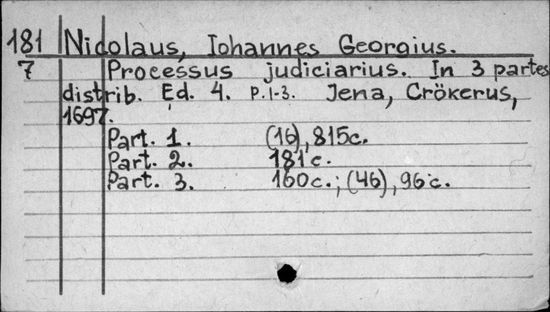 181 Nicolaus, Iohannes Georgius.
7 Processus judiciarius. In 3 partes
distrib. Ed. 4. P. 1-3. Jena, Crökerus,
1697.
Part. 1. (16), 815c.
Part. 2. 181c.
Part. 3. 160c.; (46), 96c.